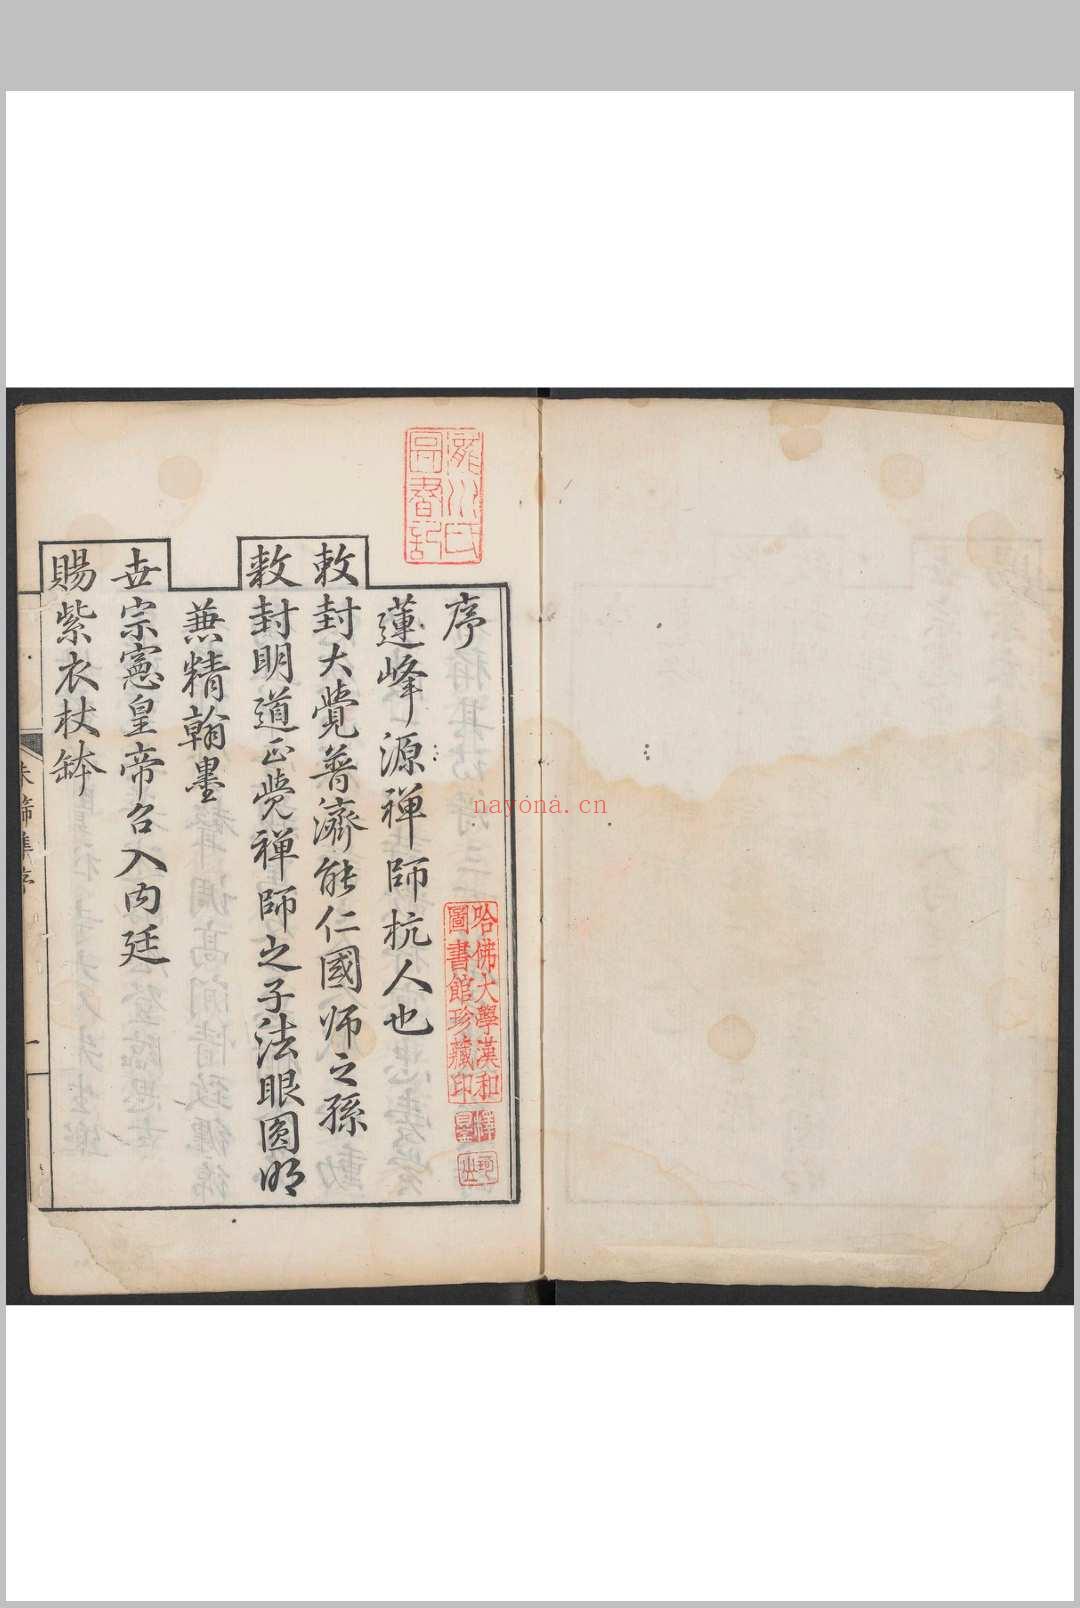 序
蓮峰源禅師杭人也
敕封大覺普濟能仁國师之孫
敕封明道正覺禅師之子法眼圓明
兼精翰墨
世宗憲皇帝召入内廷
賜紫衣杖鉢
瀧川氏
圖書記
哈佛大學漢和
圖書館珍藏印
nayona.cn